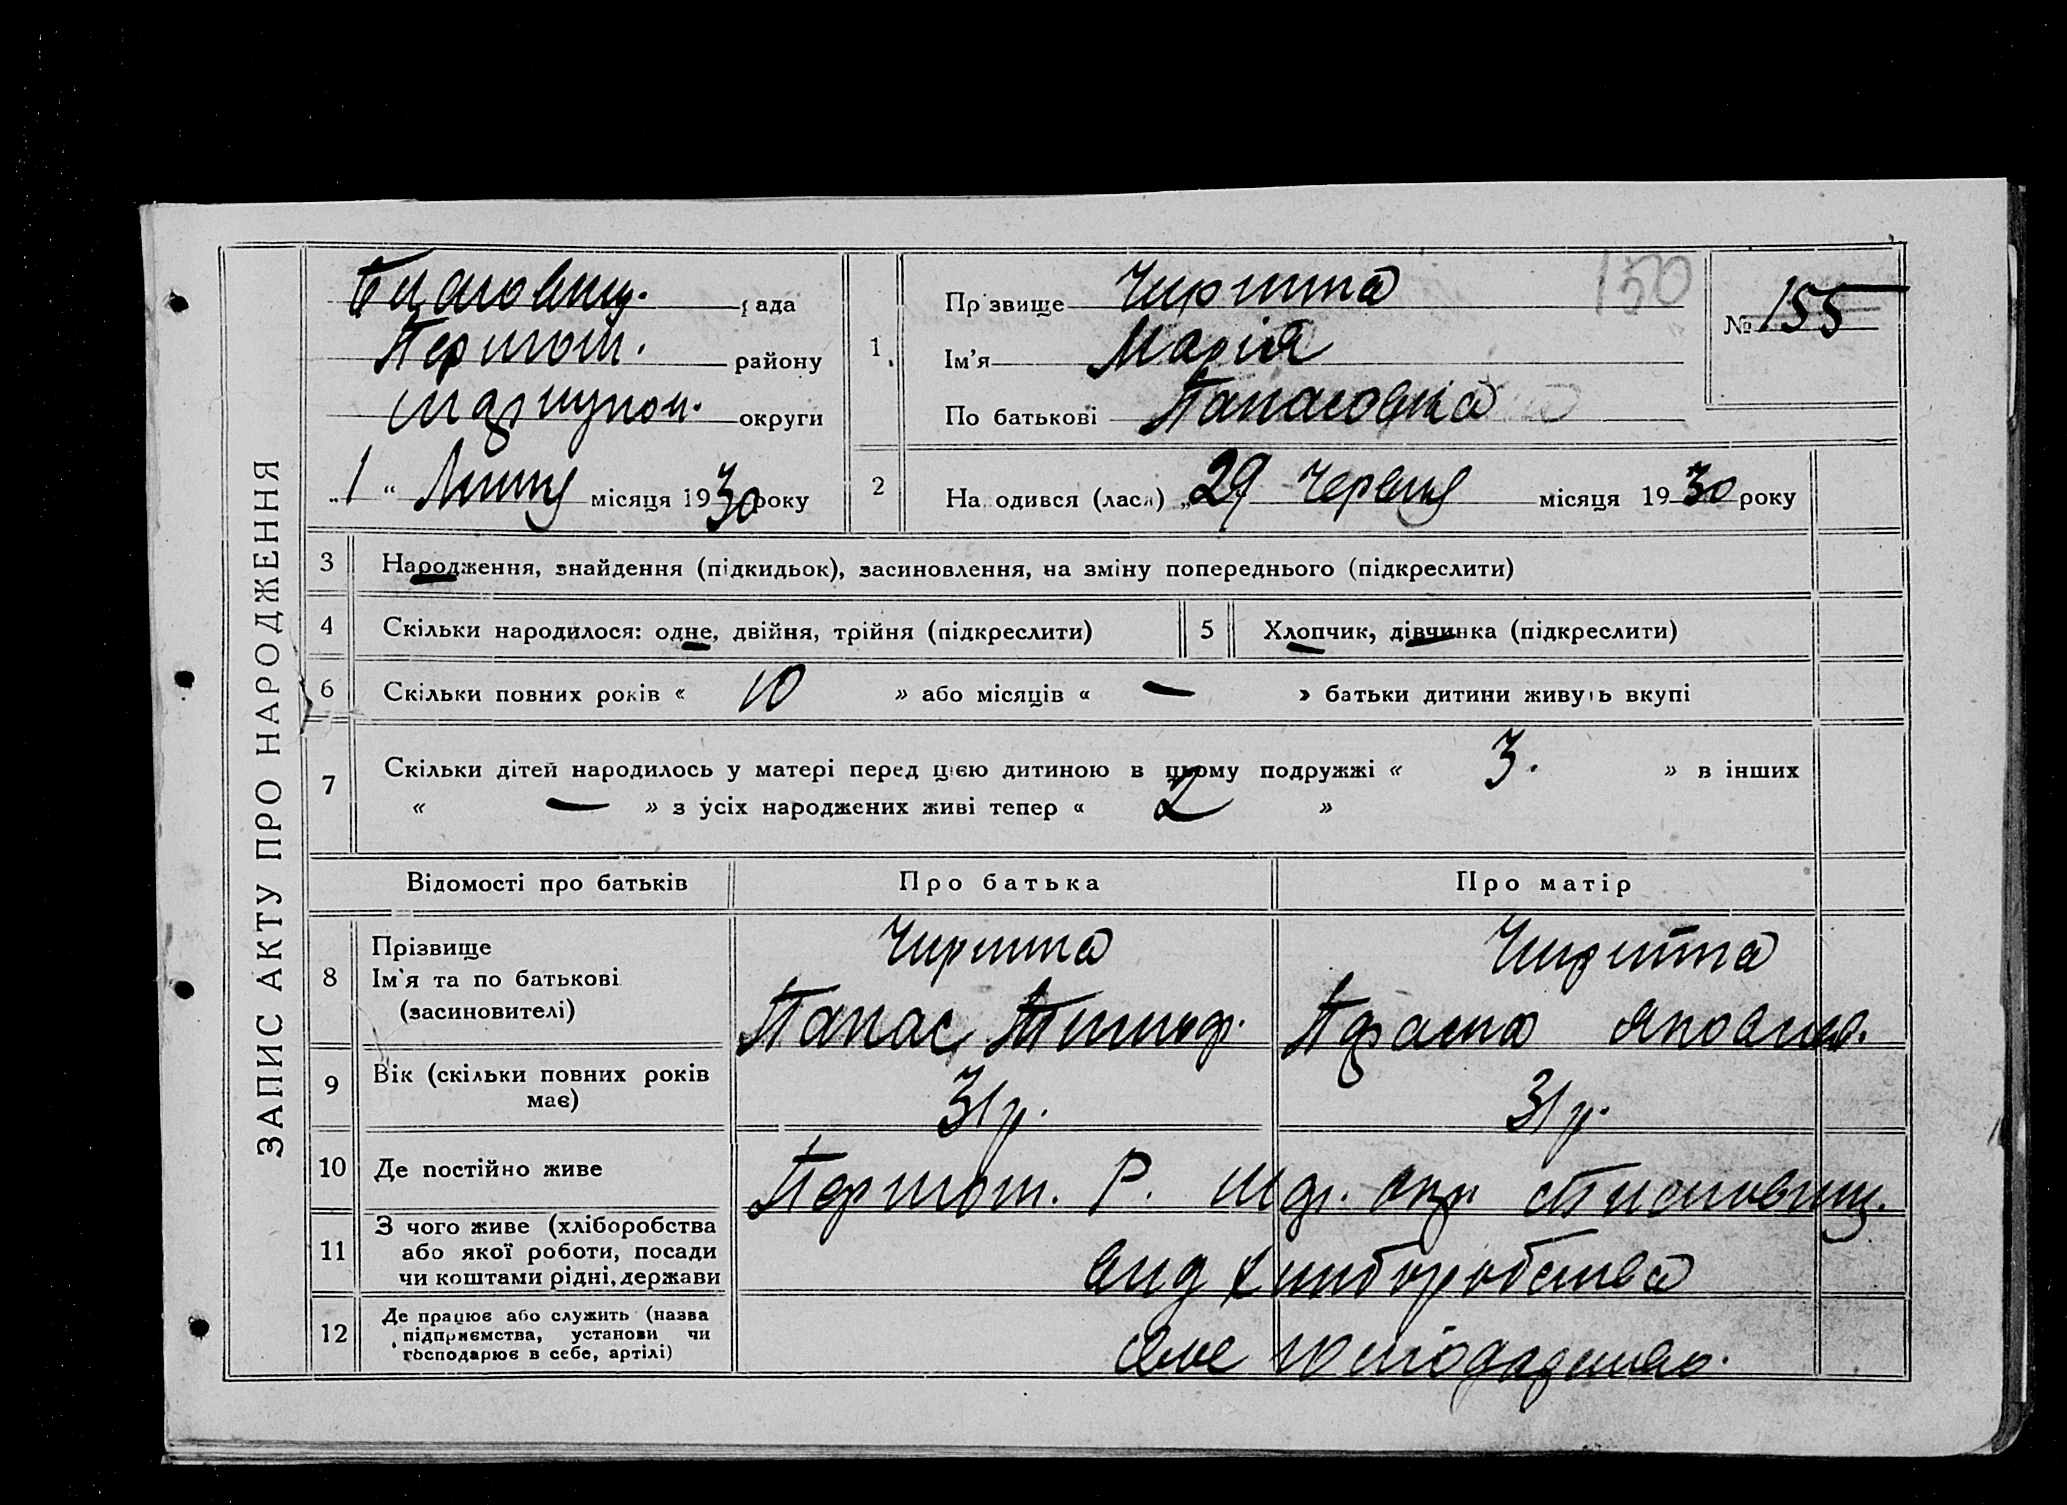 ЗАПИС АКТУ ПРО НАРОДЖЕННЯ
рада
району
округи
„1“ Липня місяця 1930 року
1. Прізвище Чиритта 150
Ім'я Марія
По батькові Панасовна
№ 155
2 Народився (лася) „29 Червня місяця 1930 року
3 Народження, знайдення (підкидьок), засиновлення, на зміну попереднього (підкреслити)
4 Скільки народилося: одне, двійня, трійня (підкреслити)
5 Хлопчик, дівчинка (підкреслити)
6 Скільки повних років « 10 » або місяців « — » батьки дитини живуть вкупі
7 Скільки дітей народилось у матері перед цією дитиною в цьому подружжі « 3. » в інших
« — » з усіх народжених живі тепер « 2 »
Відомості про батьків Про батька Про матір
8 Прізвище
Ім'я та по батькові
(засиновителі)
Чиритта
Панас
Чиритта
9 Вік (скільки повних років
має)
31 р.
31 р.
10 Де постійно живе
Р.
11 З чого живе (хліборобства
або якої роботи, посади
чи коштами рідні, держави
хлиборобства
12 Де працює або служить (назва
підприємства, установи чи
господарює в себе, артілі)